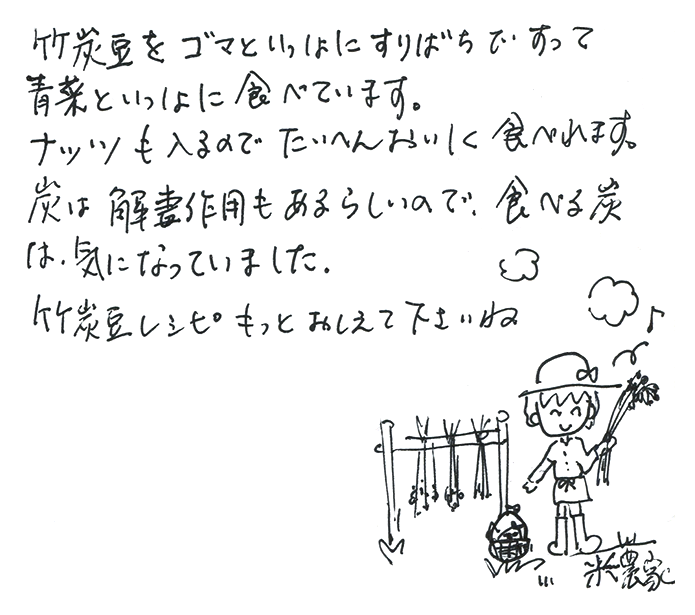 竹炭豆を ゴマといっしょに すりばちで すって
青菜といっしょに 食べています。
ナッツも入るので たいへんおいしく 食べれます。
炭は 解毒作用も あるらしいので、食べる炭
は、気になっていました。
竹炭豆レシピ もっと おしえて下さいね
米農家